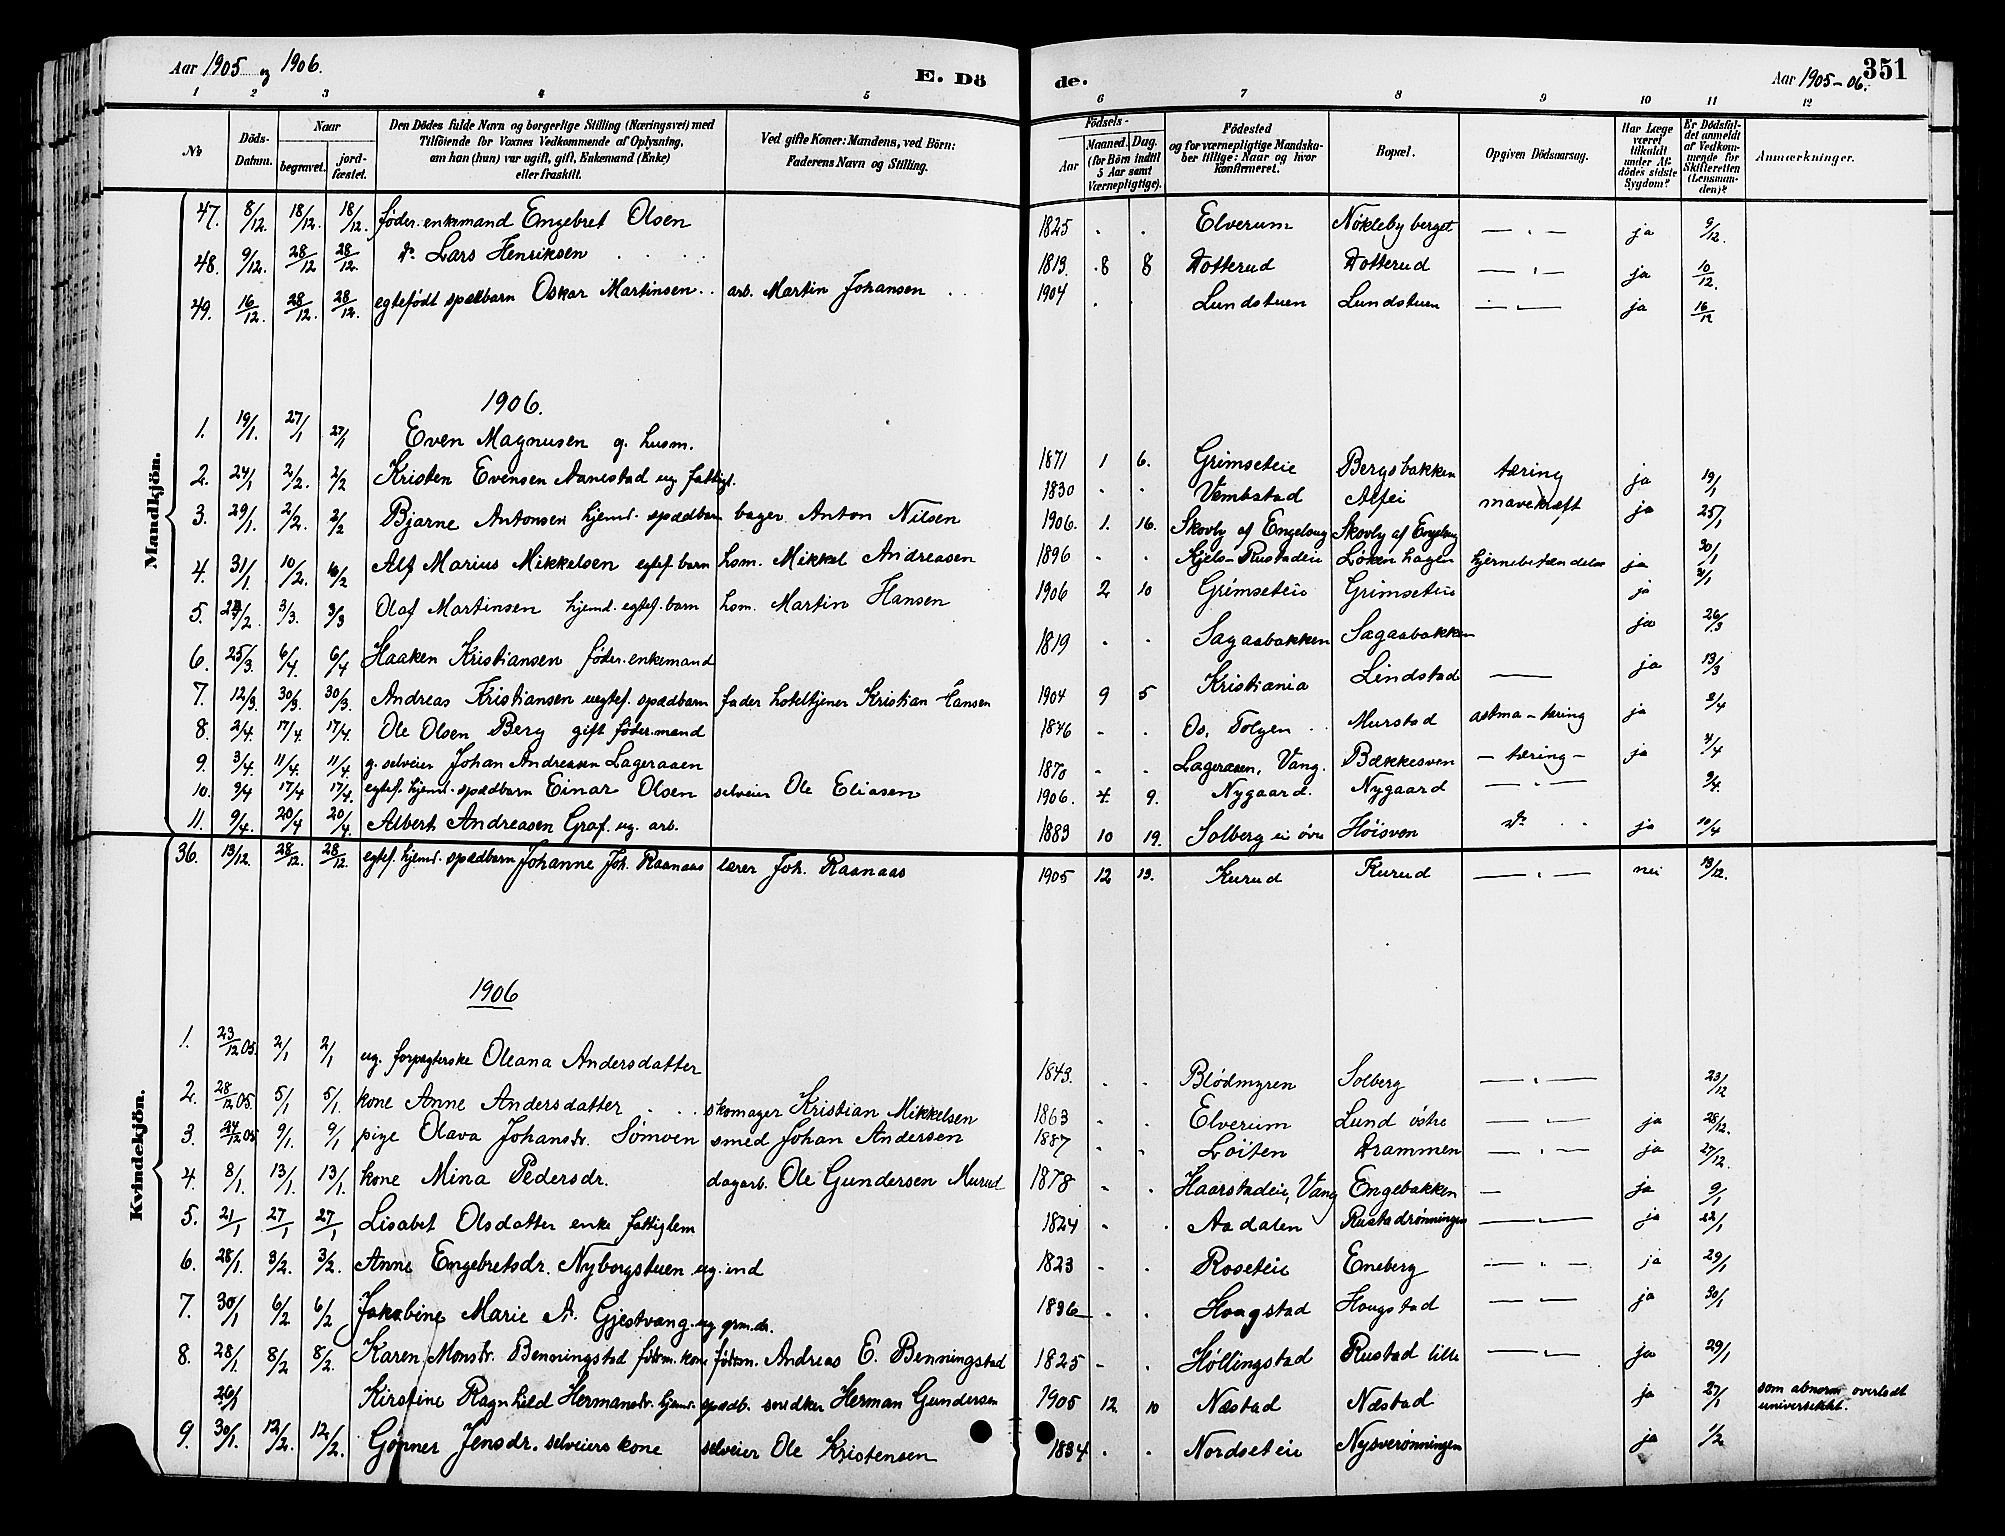 Aar 1905 og 1906.
E. Dö
de.
Aar 1905-06.
351
1 2 3 4 5 6 7 8 9 10 11 12
No
Döds-Datum.
Naar
begravet.
jord-fæstet.
Den Dödes fulde Navn og borgerlige Stilling (Næringsvei) med
Tilföiende for Voxnes Vedkommende af Oplysning,
om han (hun) var ugift, gift, Enkemand (Enke)
eller fraskilt.
Ved gifte Koner: Mandens, ved Börn:
Faderens Navn og Stilling.
Födsels-
Aar
Maaned. Dag.
(for Börn indtil
5 Aar samt
Værnepligtige).
Födested
og for værnepligtige Mandska-
ber tillige: Naar og hvor
konfirmeret.
Bopæl.
Opgiven Dödsaarsag.
Har Læge
været
tilkaldt
under Af-
dödes sidste
Sygdom?
Er Dödsfal-
det anmeldt
af Vedkom-
mende for
Skifteretten
(Lensman-
den)?
Anmærkninger.
Mandkjön.
47. 8/12. 18/12. 18/12. föder. enkemand Engebret Olsen 1825 Elverum Nökleby berget — " — ja 9/12.
48. 9/12. 28/12 28/12. do Lars Henriksen 1813. 8 8 Dotterud Dotterud — " — ja 10/12.
49. 16/12. 28/12. 28/12. egtefödt spædbarn Oskar Martinsen arb. Martin Johansen 1904 Lundstuen Lundstuen — " — ja 16/12
1906.
1. 19/1. 27/1 27/1 Even Magnusen g. husm. 1871 1 6. Grimseteie Bergsbakken tæring ja 19/1
2. 24/1 2/2. 2/2 Kristen Evensen Aanestad ug. fattigl. 1830 Vembstad Alfei mavekræft ja 25/1
3. 29/1. 2/2. 2/2 Bjarne Antonsen hjemd. spædbarn bager Anton Nilsen 1906. 1. 16. Skovly af Engelaug Skovly af Engelaug 30/1
4. 31/1 10/2. 10/2 Alf Marius Mikkelsen egtef. barn hsm. Mikkel Andreasen 1896 Kjels-Rustadeie Löken hagen hjernebetændelse ja
5. 3/3. 3/3 Olaf Martinsen hjemd. egtef. barn hsm. Martin Hansen 1906 2 10 Grimseteie Grimseteie ja
6. 25/3. 6/4 6/4 Haaken Kristiansen föder. enkemand 1819 Sagaabakken Sagaabakken ja 26/3
7. 12/3. 30/3. 30/3. Andreas Kristiansen uegtef. spædbarn fader hoteltjener Kristian Hansen 1904 9 5 Kristiania Lindstad — ja 13/3
8. 2/4. 17/4. 17/4. Ole Olsen Berg gift föder. mand 1846 Os, Tolgen Murstad astma-tæring ja 2/4
9. 3/4. 11/4. 11/4. g. selveier Johan Andreasen Lageraaen 1870 Lageraaen, Vang. Bækkesven — tæring — ja 4/4
10. 9/4 17/4 17/4. egtef. hjemd. spædbarn Einar Olsen selveier Ole Eliasen 1906. 4. 9. Nygaard. Nygaard — " — 9/4.
11. 9/4. 20/4 20/4. Albert Andreasen Graf. ug. arb. 1883 10 19. Solberg ei övre Höisven do ja 10/4
Kvindekjön.
36. 13/12. 28/12. 28/12. egtef. hjemd. spædbarn Johanne Joh. Raanaas lærer Joh. Raanaas 1905 12 13. Kurud Kurud — " — nei 13/12.
1906
1. 23/12 05. 2/1 2/1 ug. forpagterske Oleana Andersdatter 1843. Blödmyren Solberg — " — 23/12
2. 28/12 05. 5/1 5/1. kone Anne Andersdatter skomager Kristian Mikkelsen 1863 Elverum Lund östre — " — ja 28/12.
3. 24/12 05 9/1. 9/1 pige Olava Johansdr. Sömoen smed Johan Andersen 1887 Löiten Drammen — " — ja 27/12.
4. 8/1. 13/1. 13/1. kone Mina Pedersdr. dagarb. Ole Gundersen Murud 1878 Haarstadeie, Vang Engebakken — ja 9/1
5. 21/1 27/1 27/1 Lisabet Olsdatter enke fattiglem 1824 Aadalen Rustadrönningen — " — ja 22/1
6. 28/1. 3/2. 3/2. Anne Engebretsdr. Nyborgstuen ug. ind 1823 Roseteie Eneberg — " — ja 29/1
7. 30/1 6/2 6/2 Jakobine Marie A. Gjestvang. ug. grm. dr. 1836 Hougstad Hougstad — " — ja 30/1
8. 28/1. 8/2 8/2. Karen Monsdr. Benningstad föderm. kone föderm. Andreas E. Benningstad 1825 Höllingstad Rustad lille — " — ja 29/1
26/1 Kirstine Ragnhild Hermansdr. hjemd. spædb. snedker Herman Gundersen 1905 12 10 Næstad Næstad ja 27/1 som abnorm overladt
universitetet.
9. 30/1. 12/2. 12/2. Gönner Jensdr. selveiers kone selveier Ole Kristensen 1834 Nordseteie Nysverönningen ja 1/2